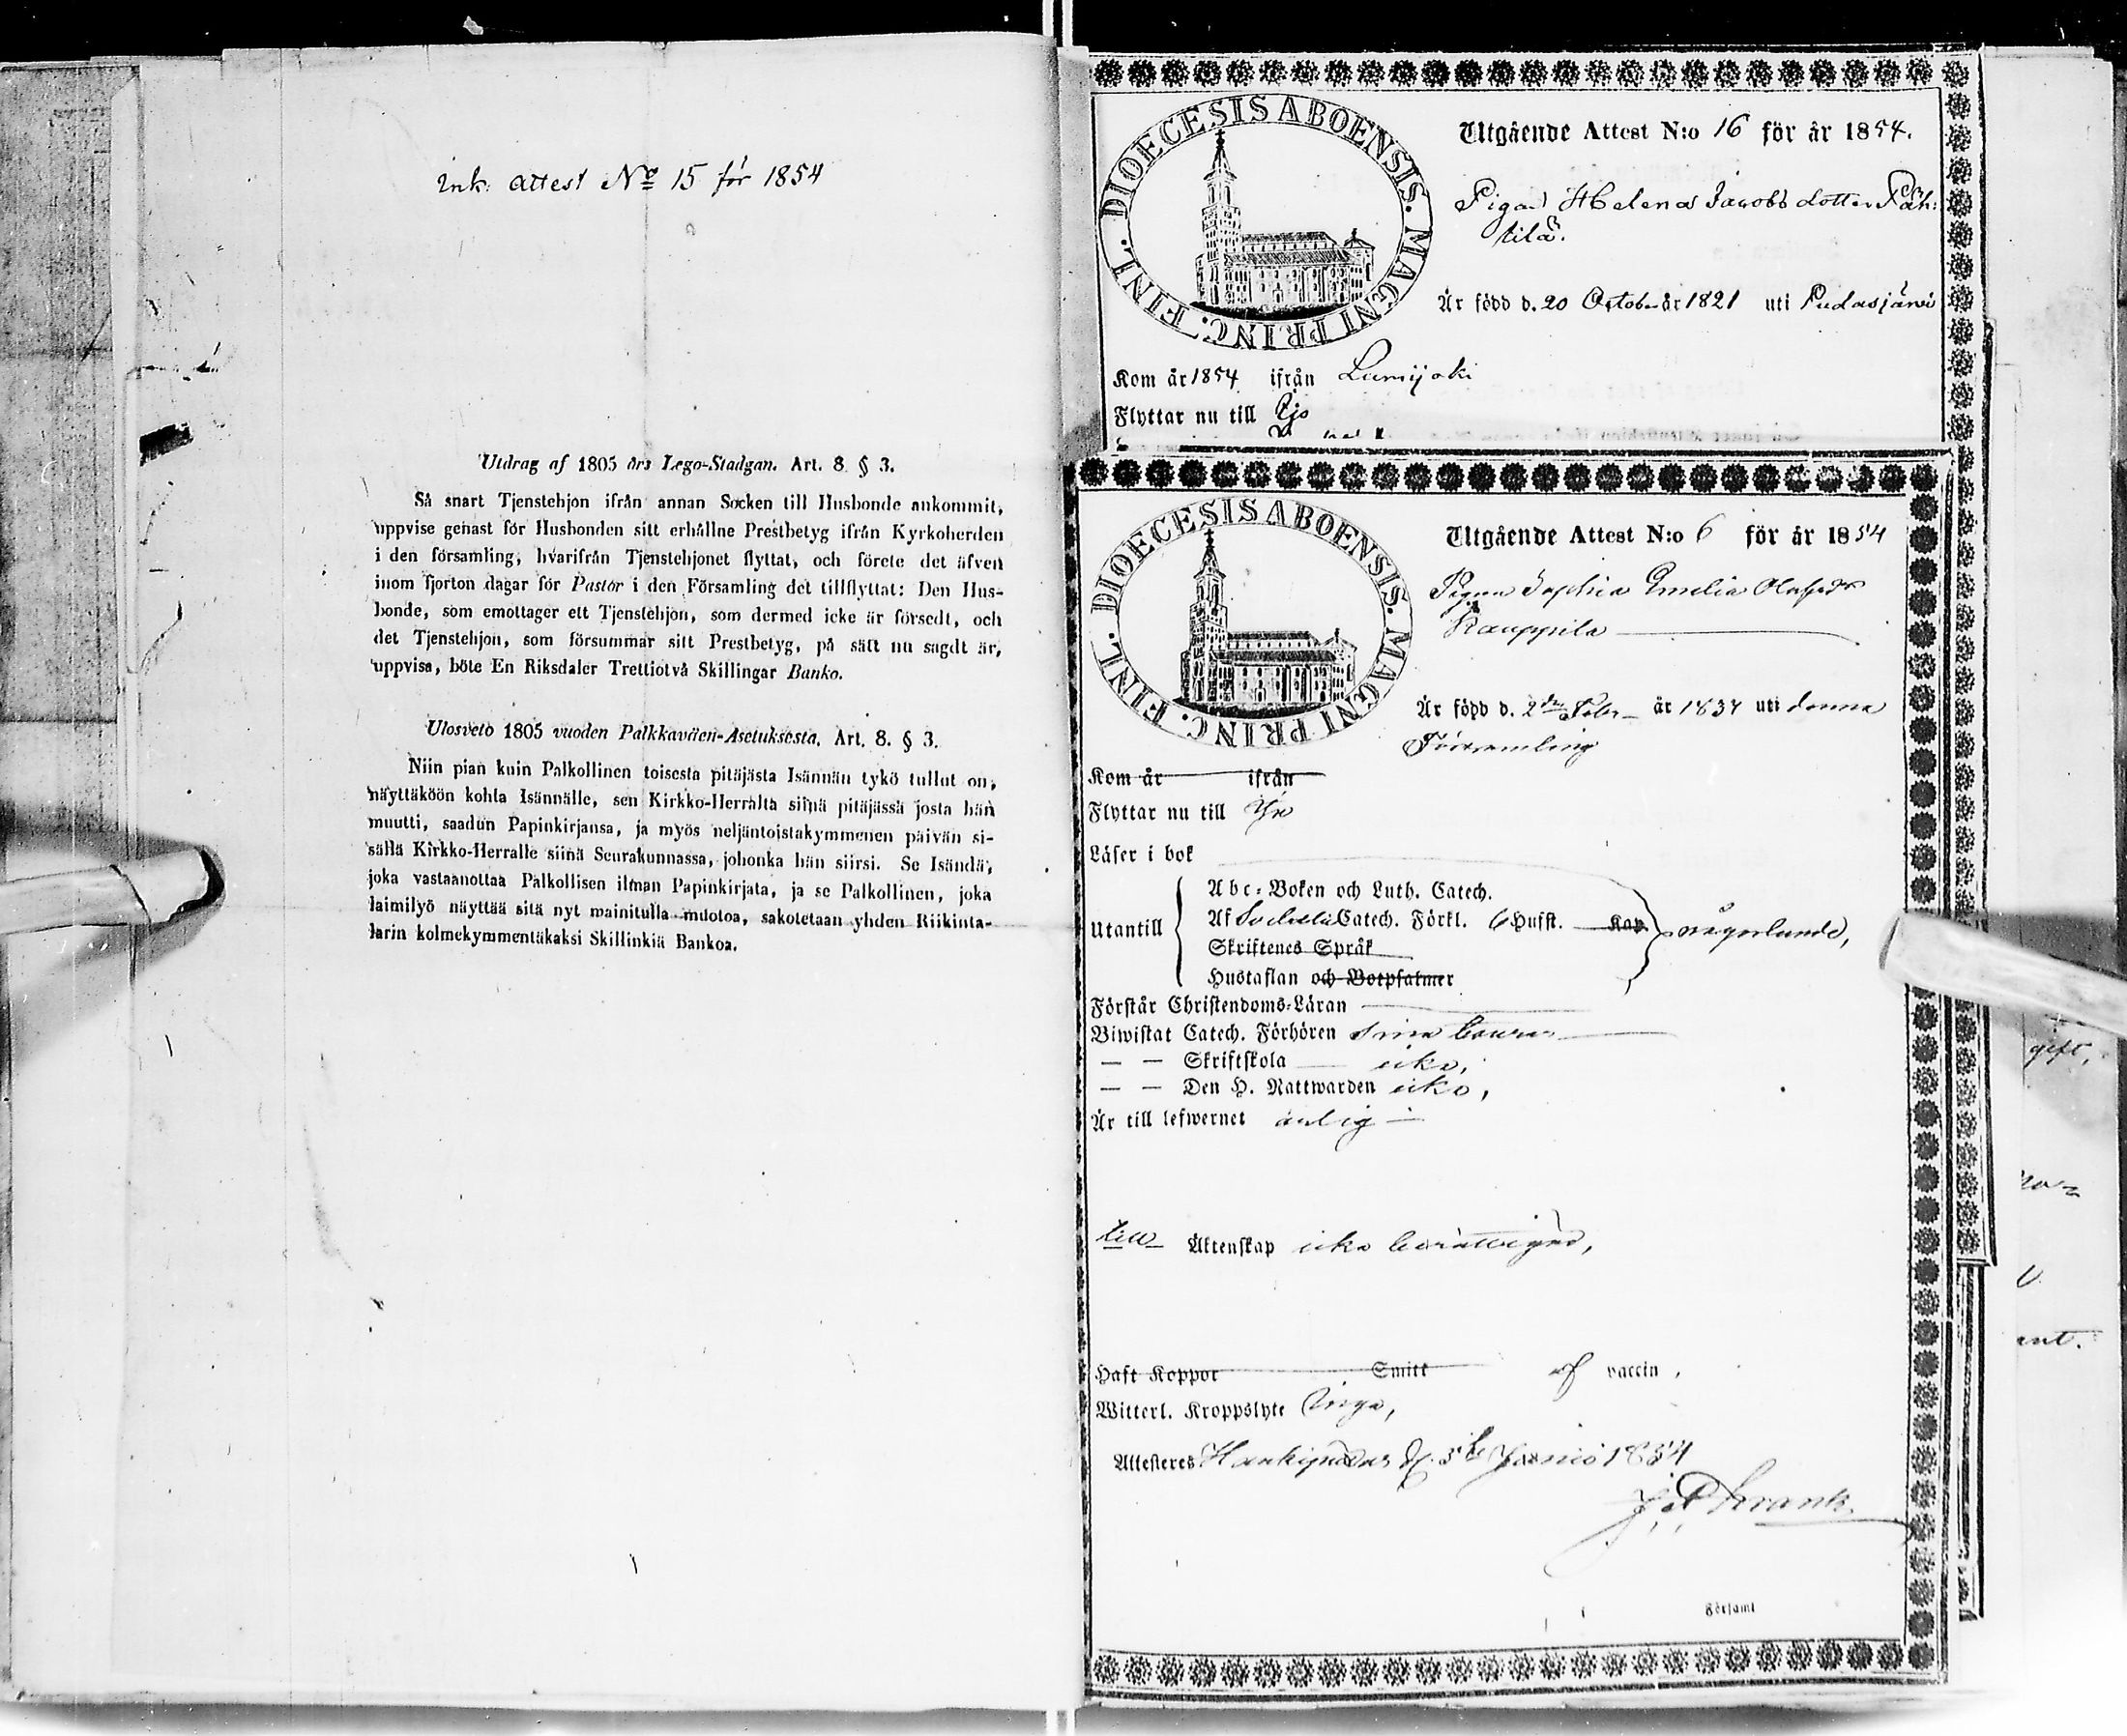 Ink. attest No 15 för 1854
Utdrag af 1805 års Lego-Stadgan. Art. 8 § 3.
Så snart Tjenstehjon ifrån annan Socken till Husbonde ankommit,
uppvise genast för Husbonden sitt erhållne Prestbetyg ifrån Kyrkoherden
i den församling, hvarifrån Tjenstehjonet flyttat, och förete det äfven
inom fjorton dagar för Pastor i den Församling det tillflyttat: Den Hus-
bonde, som emottager ett Tjenstehjon, som dermed icke är försedt, och
det Tjenstehjon, som försummar sitt Prestbetyg, på sätt nu sagdt är,
uppvisa, böte En Riksdaler Trettiotvå Skillingar Banko.
Ulosveto 1805 vuoden Palkkaväen-Asetuksesta. Art. 8. § 3.
Niin pian kuin Palkollinen toisesta pitäjästa Isännän tykö tullut on,
näyttäköön kohta Isännälle, sen Kirkko-Herralta siinä pitäjässä josta hän
muutti, saadun Papinkirjansa, ja myös neljäntoistakymmenen päivän si-
sällä Kirkko-Herralle siinä Seurakunnassa, johonka hän siirsi. Se Isändä,
joka vastaanottaa Palkollisen ilman Papinkirjata, ja se Palkollinen, joka
laimilyö näyttää sitä nyt mainitulla muotoa, sakotetaan yhden Riikinta-
larin kolmekymmentäkaksi Skillinkiä Bankoa.
DIOECESIS ABOENSIS. MAGNI PRINC. FINL.
Utgående Attest N:o 16 för år 1854.
Pigan Helena Jacobsdotter Päh-
tilä.
Är född d. 20 October år 1821 uti Pudasjärvi
Kom år 1854 ifrån Lumijoki
Flyttar nu till Ijo
DIOECESIS ABOENSIS. MAGNI PRINC. FINL.
Utgående Attest N:o 6 för år 1854
Pigan Sophia Emelia Olofsdr
Kauppila
Är född d. 2dra Febr år 1837 uti denna
Församling
Kom år ifrån
Flyttar nu till Ijo
Läser i bok
Utantill
Abc-Boken och Luth. Catech.
Af Catech. Förkl. 6 Hufst. Kap.
Skriftenes Språk
Hustaflan och Botpsalmer
någorlunda,
Förstår Christendoms-Läran
Biwistat Catech. Förhören sina
— — Skriftskola icke,
— — Den H. Nattwarden icke,
Är till lefwernet ärlig
till Äktenskap icke berättigad,
Haft Koppor Smitt af vaccin,
Witterl. Kroppslyte Inga,
Attesteres Haukipudas d. 5te Junii 1854
Församl
gift,